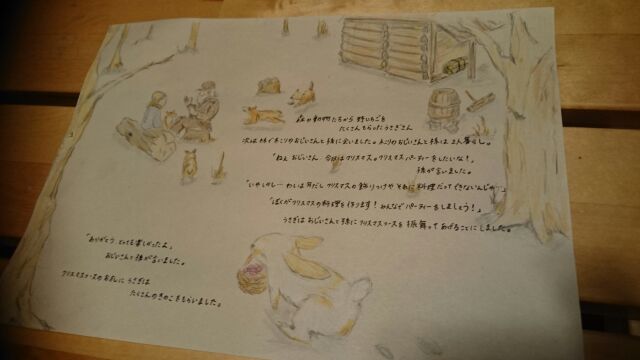 森の動物たちから野いちごを
たくさんもらったうさぎさん
次は木こりのおじいさんと孫に会いました。木こりのおじいさんと孫は2人暮らし。
「ねぇ おじいさん 今日はクリスマス。クリスマスパーティーをしたいな！」
孫が言いました。
「いや しかし… わしは クリスマスの飾りつけや それに料理だってできないんじゃ…」
「ぼくがクリスマスの料理を作ります！みんなでパーティーをしましょう！」
うさぎはおじいさんと孫にクリスマスコースを振舞ってあげることにしました。
「ありがとう とっても楽しかったよ」
おじいさんと孫が言いました。
クリスマスコースのお礼に うさぎは
たくさんのきのこをもらいました。